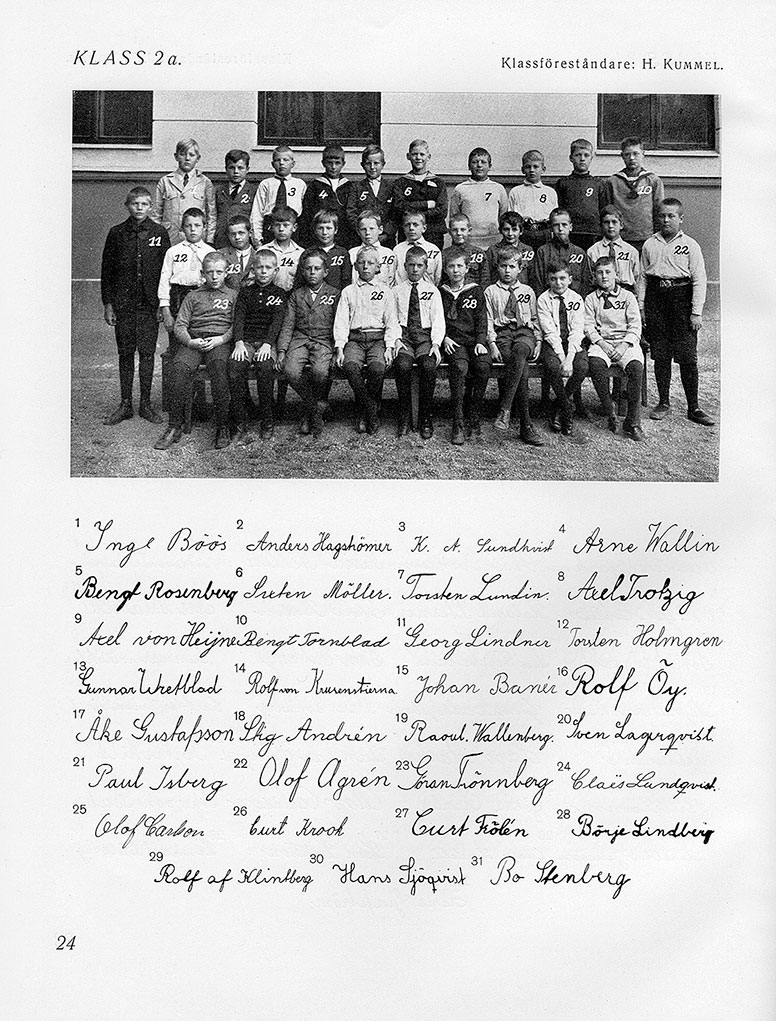 KLASS 2a.
Klassföreståndare: H. KUMMEL.
1 2 3 4 5 6 7 8 9 10
11 12 13 14 15 16 17 18 19 20 21 22
23 24 25 26 27 28 29 30 31
1 Inge Böös 2 Anders Hagströmer 3 K. A. Sundkvist 4 Arne Wallin
5 Bengt Rosenberg 6 Sixten Möller. 7 Torsten Lundin. 8 Axel Trotzig
9 Axel von Heijne 10 Bengt Tornblad 11 Georg Lindner 12 Torsten Holmgren
13 Gunnar Wretblad 14 Rolf von Krusenstierna 15 Johan Banér 16 Rolf Öy.
17 Åke Gustafsson 18 Stig Andrén 19 Raoul. Wallenberg. 20 Sven Lagerqvist.
21 Paul Isberg 22 Olof Ågrén 23 Göran Frönnberg 24 Claës Lundqvist.
25 Olof Carlson 26 Curt Krook 27 Curt Frölén 28 Börje Lindberg
29 Rolf af Klintberg 30 Hans Sjöqvist 31 Bo Stenberg
24